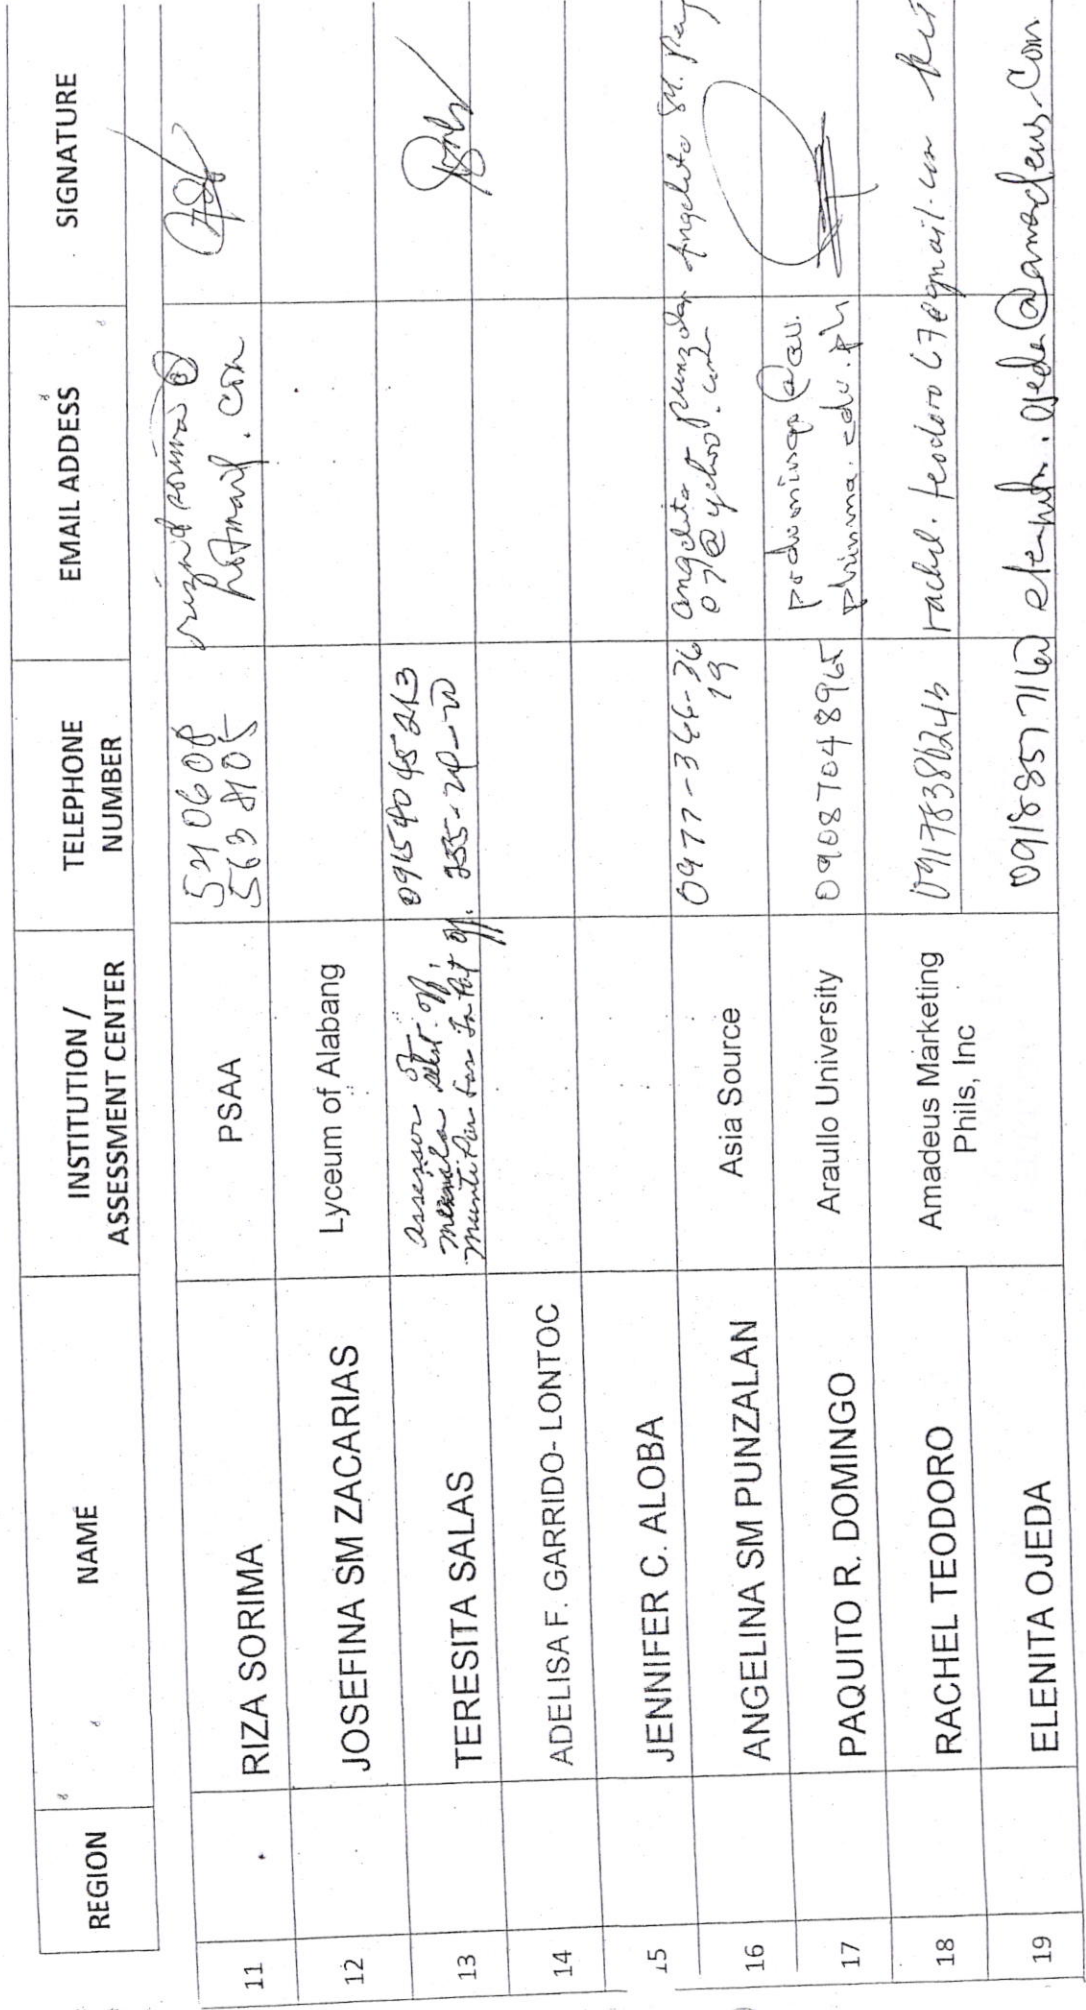 REGION
NAME
INSTITUTION /
ASSESSMENT CENTER
TELEPHONE
NUMBER
EMAIL ADDESS
SIGNATURE
11
RIZA SORIMA
PSAA
563 8105
hotmail.com
12
JOSEFINA SM ZACARIAS
Lyceum of Alabang
13
TERESITA SALAS
assessor
14
ADELISA F. GARRIDO- LONTOC
15
JENNIFER C. ALOBA
16
ANGELINA SM PUNZALAN
Asia Source
0977-366-36
19
07@yahoo.com
17
PAQUITO R. DOMINGO
Araullo University
09087048965
podomingo@au.
phinma.edu.ph
18
RACHEL TEODORO
Amadeus Marketing
Phils, Inc
rachel.teodoro67@gmail.com
19
ELENITA OJEDA
ojeda@amadeus.com